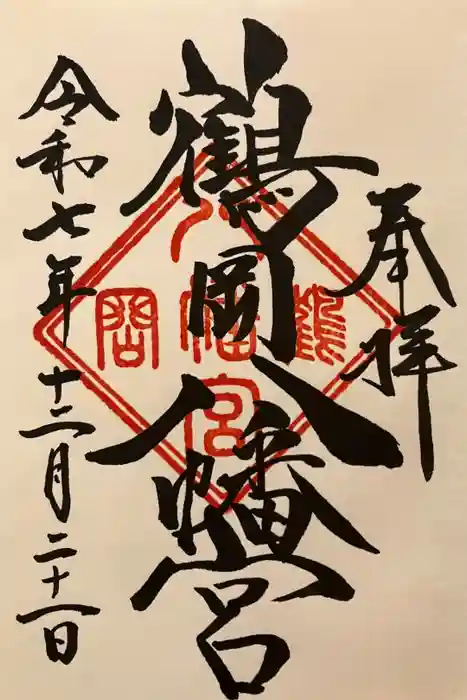 奉拝
鶴岡八幡宮
令和七年十二月二十一日
鶴岡八幡宮